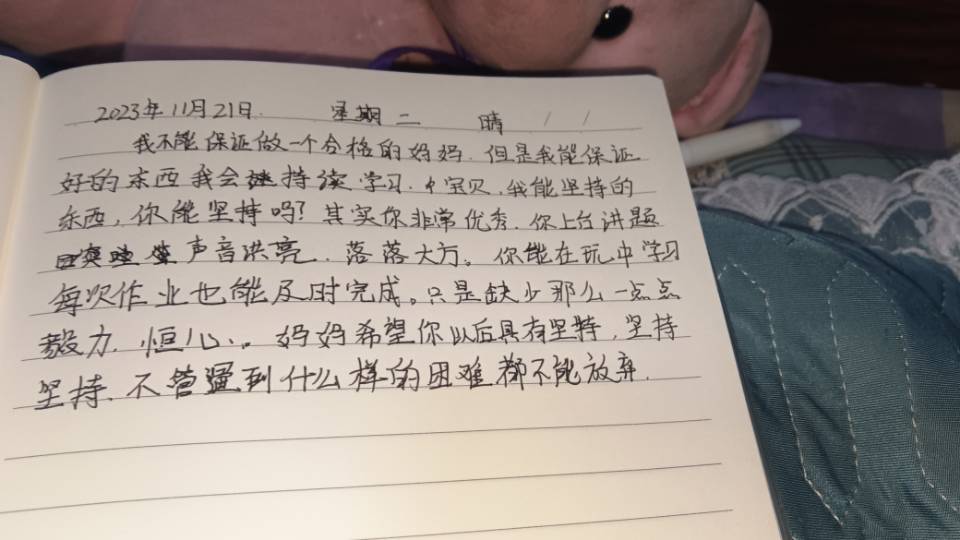 2023年11月21日. 星期二 晴
我不能保证做一个合格的妈妈.但是我能保证
好的东西我会坚持续学习.宝贝.我能坚持的
东西,你能坚持吗?其实你非常优秀.你上台讲题
声音洪亮.落落大方。你能在玩中学习
每次作业也能及时完成。只是缺少那么一点点
毅力.恒心.。妈妈希望你以后具有坚持,坚持
坚持.不管遇到什么样的困难都不能放弃.